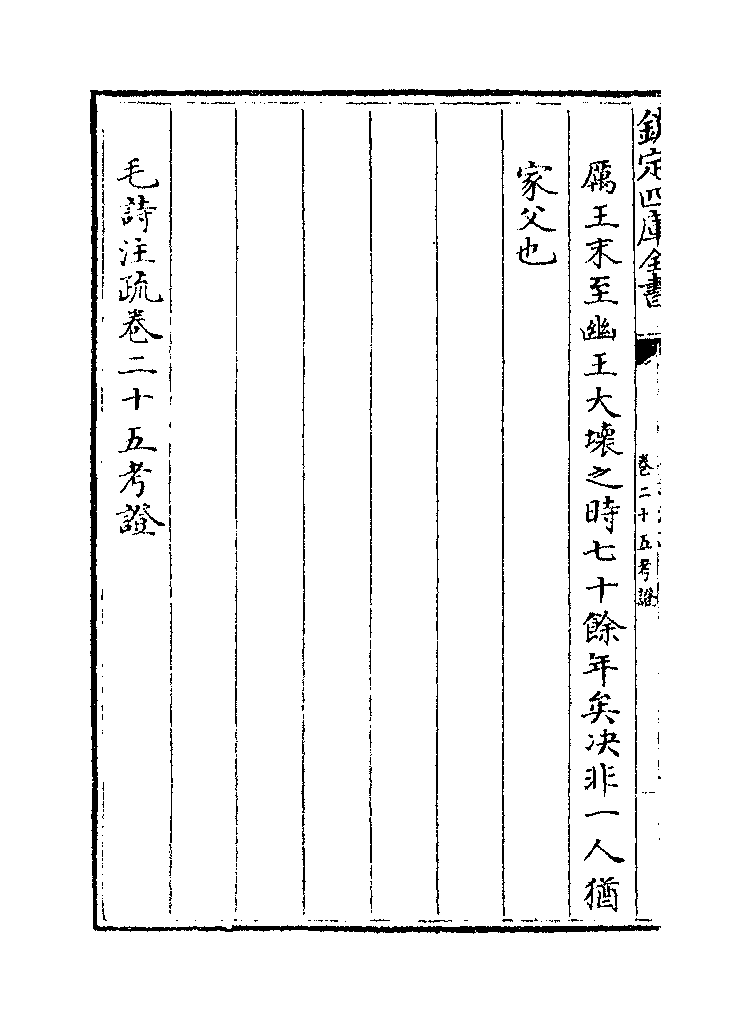 欽定四庫全書
卷二十五考證
厲王末至幽王大壞之時七十餘年矣决非一人猶
家父也
毛詩注疏卷二十五考證